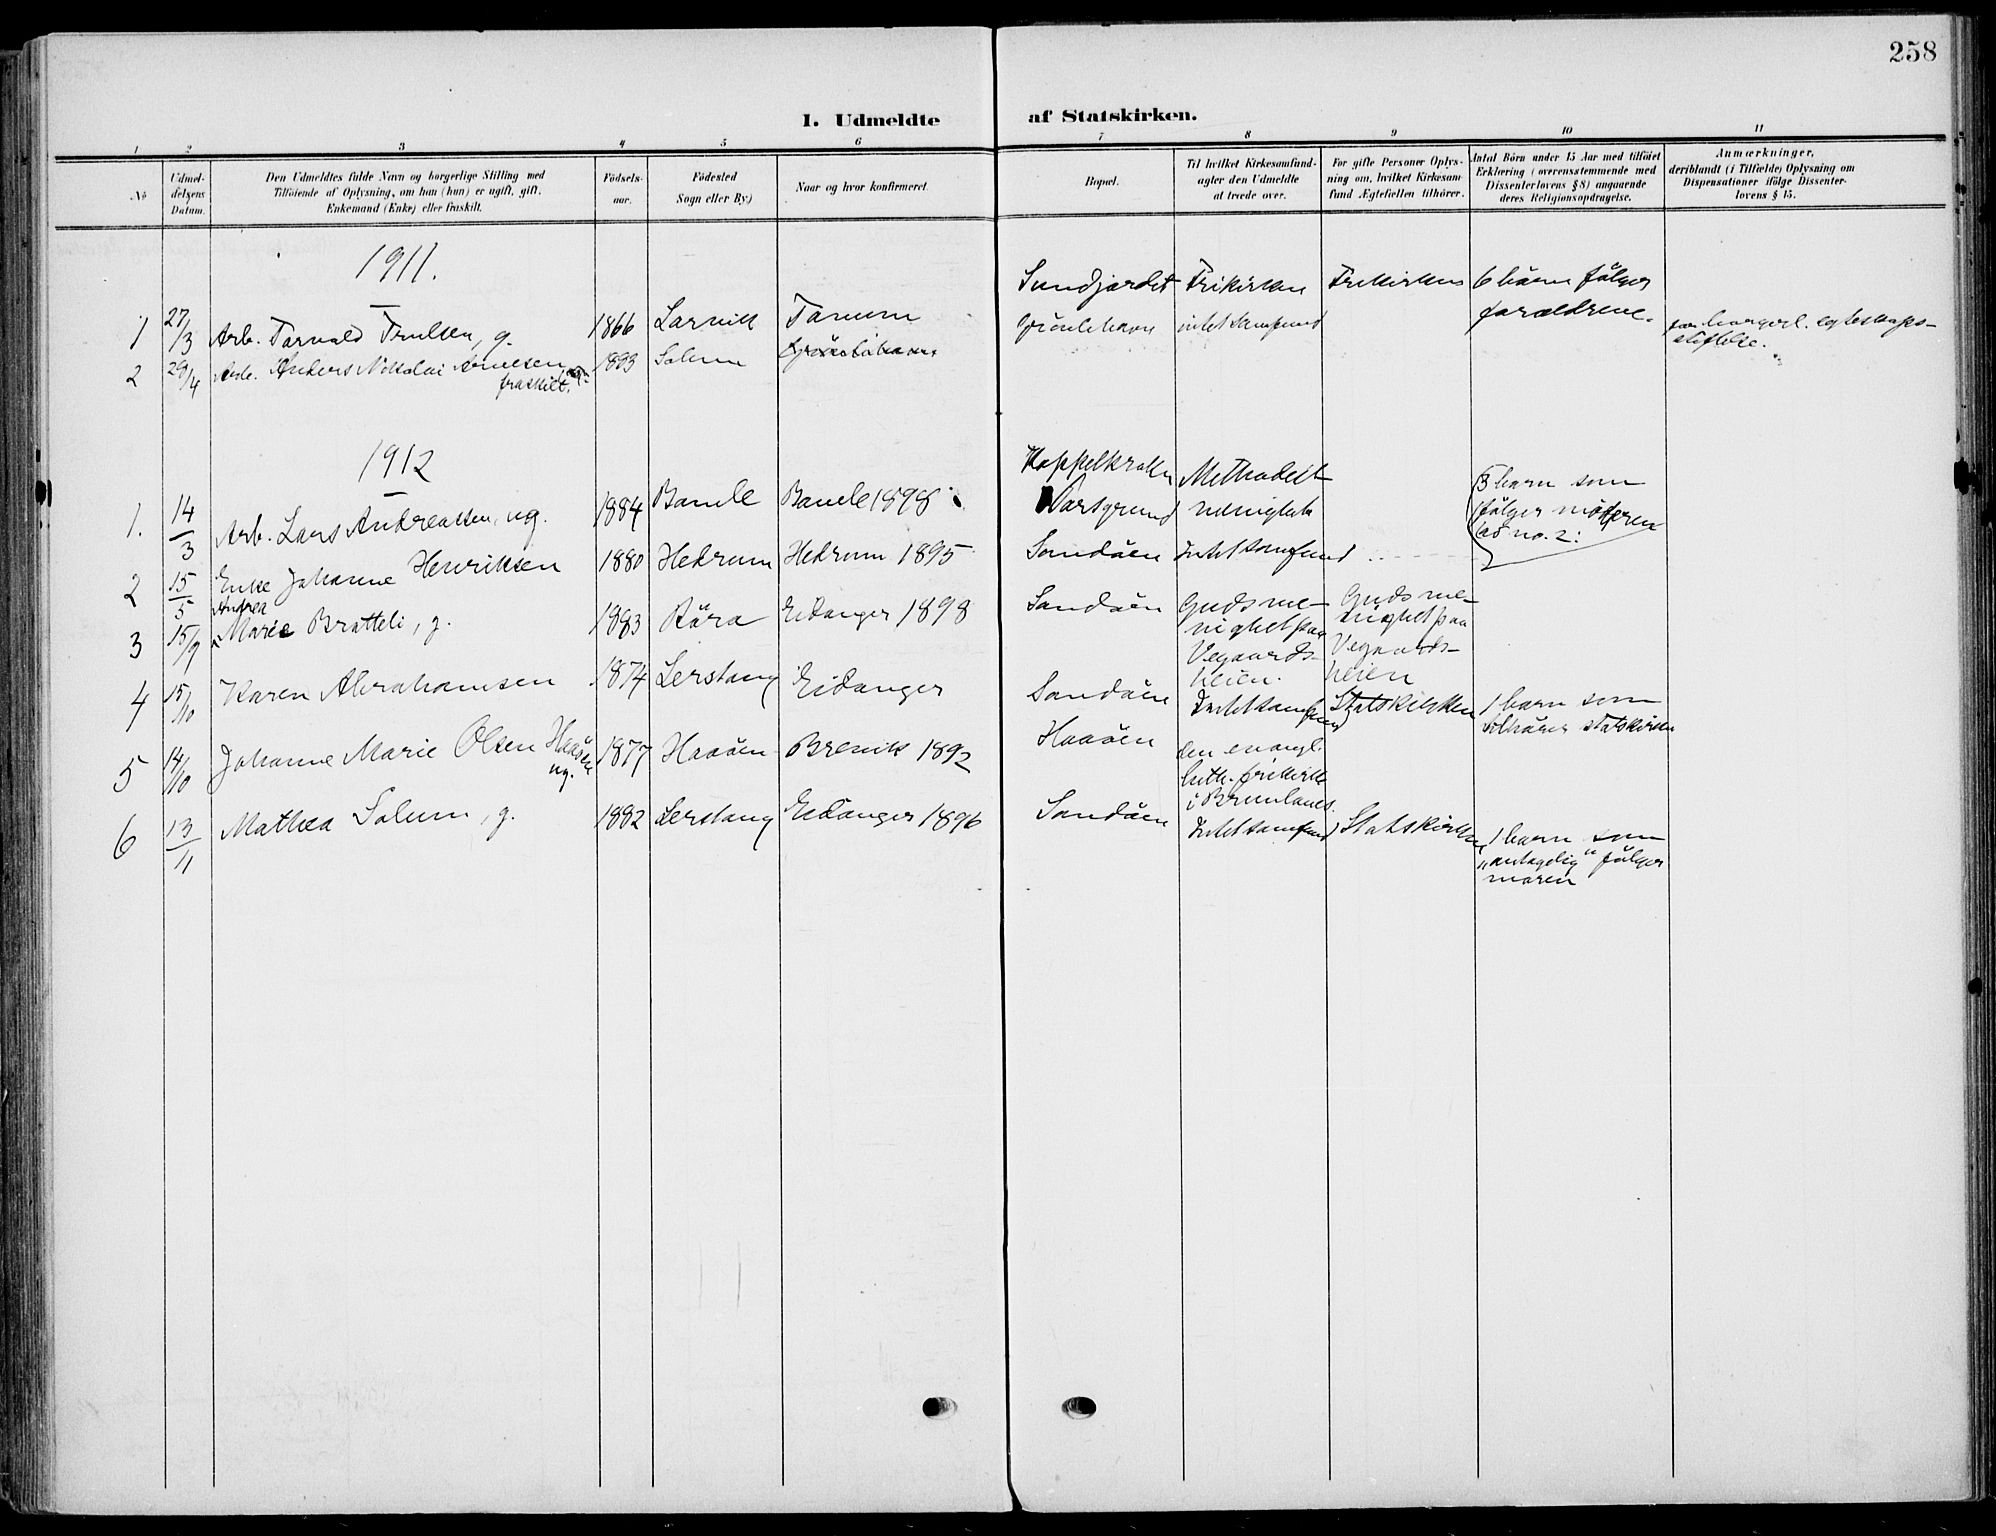 258
1. Udmeldte af Statskirken.
1 2 3 4 5 6 7 8 9 10 11
No
Udmeldelsens Datum.
Den Udmeldtes fulde Navn og borgerlige Stilling med
Tilföiende af Oplysning, om han (hun) er ugift, gift,
Enkemand (Enke) eller fraskilt.
Födselsaar.
Födested
Sogn eller By)
Naar og hvor konfirmeret.
Bopæl.
Til hvilket Kirkesamfund-
agter den Udmeldte
at træde over.
For gifte Personer Oplys-
ning om, hvilket Kirkesam-
fund Ægtefællen tilhörer.
Antal Börn under 15 Aar med tilföiet
Erklæring (overensstemmende med
Dissenterlovens § 8) angaaende
deres Religionsopdragelse.
Anmærkninger,
deriblandt (i Tilfælde) Oplysning om
Dispensationer ifölge Dissenter-
lovens § 15.
1911.
1 27/3 Arb. Torvald Trulsen, g. 1866 Larvik Tanum Sundjordet Frikirken Frikirken 6 börn fölger
forældrene.
2 29/4 Arb. Anders Nikolai Arnesen 1893 Solum Grönlihavn intet samfund for borgerl. egteskaps-
fraskilt. stiftelse.
1912
1. 14/3 Arb. Lars Andreassen, ug. 1884 Bamle Bamle 1898 Kappelkroken
Porsgrund Methodist
menighet 3 barn som
fölger moderen
ad no. 2.
2 15/5 Enke Johanne Henriksen 1880 Hedrum Hedrum 1895 Sandöen Intet samfund
3 15/9 Andrea
Marie Bratteli, g. 1883 Röra Eidanger 1898 Sandöen Guds me-
nighet paa
Vegaards-
heien. Guds me-
nighet paa
Vegaards-
heien
4 15/10 Karen Abrahamsen 1874 Lerstang Eidanger Sandöen Intet samfund Statskirken 1 barn som
tilhörer statskirken
5 14/10 Johanne Marie Olsen Haaöen
ug. 1877 Haaöen Brevik 1892 Haaöen den evangl.
luth. frikirke
i Brunlanes.
6 13/11 Mathea Solum, g. 1882 Lerstang Eidanger 1896 Sandöen Intet samfund Statskirken 1 barn som
"antagelig" fölger
moren